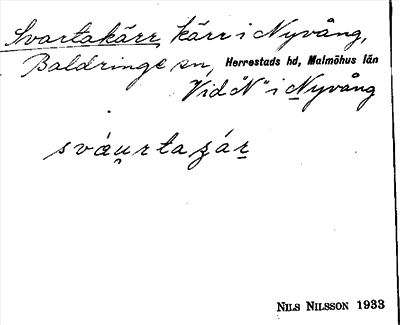 Svartakärr, kärr i Nyvång,
Baldringe sn, Herrestads hd, Malmöhus län
Vid "N" i Nyvång
sváu̯rtaʒáṟ
NILS NILSSON 1933